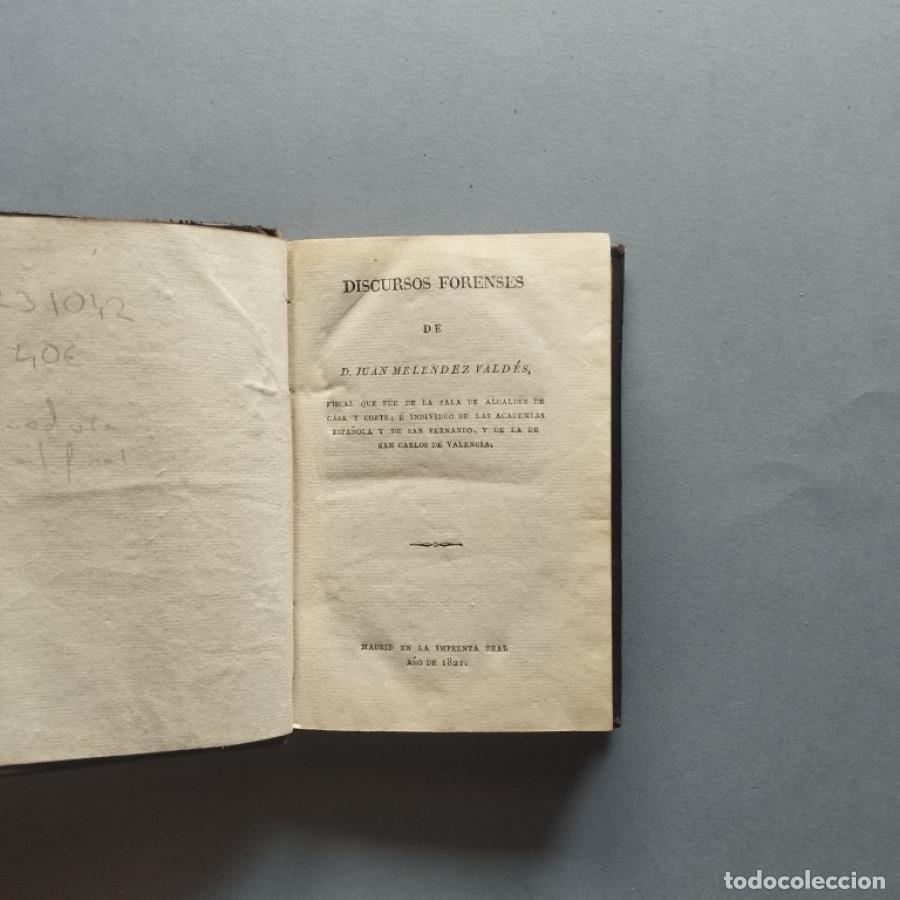 231042
40€
al final
DISCURSOS FORENSES
DE
D. JUAN MELENDEZ VALDÉS,
FISCAL QUE FUE DE LA SALA DE ALCALDES DE
CASA Y CORTE, É INDIVIDUO DE LAS ACADEMIAS
ESPAÑOLA Y DE SAN FERNANDO, Y DE LA DE
SAN CARLOS DE VALENCIA.
MADRID EN LA IMPRENTA REAL
AÑO DE 1821.
todocoleccion